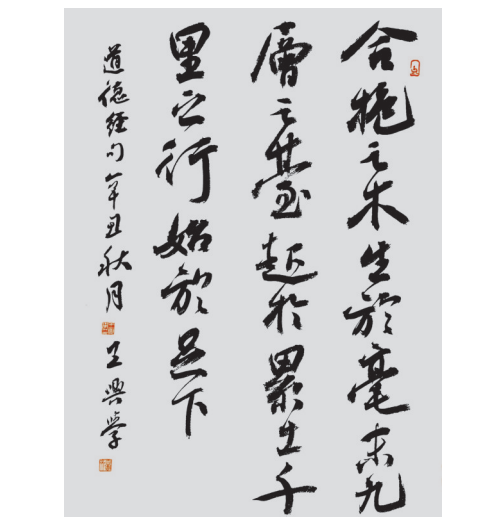 合抱之木生於毫末九
層之臺起於累土千
里之行始於足下
道德经句辛丑秋月
王興学